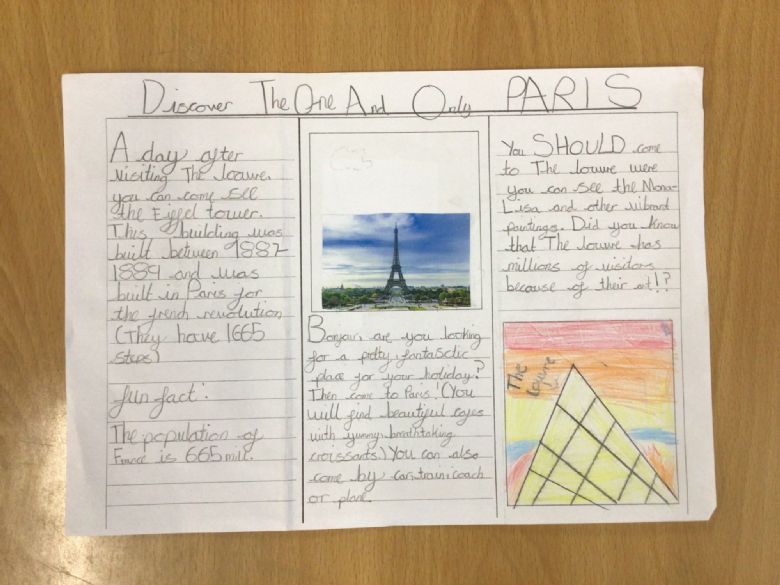 Discover The One And Only PARIS
A day after
visiting The louvre,
you can come see
the Eiffel tower.
This building was
built between 1887
1889 and was
built in Paris for
the french revolution
(They have 1665
steps)
fun fact:
The population of
France is 665 mill.
Bonjour, are you looking
for a pretty, fantastic
place for your holiday?
Then come to Paris! (You
will find beautiful cafes
with yummy, breathtaking
croissants.) You can also
come by car, train, coach
or plane.
You SHOULD come
to The louvre were
you can see the Mona-
Lisa and other vibrant
paintings. Did you know
that The louvre has
millions of visitors
because of their art!?
The
Louvre